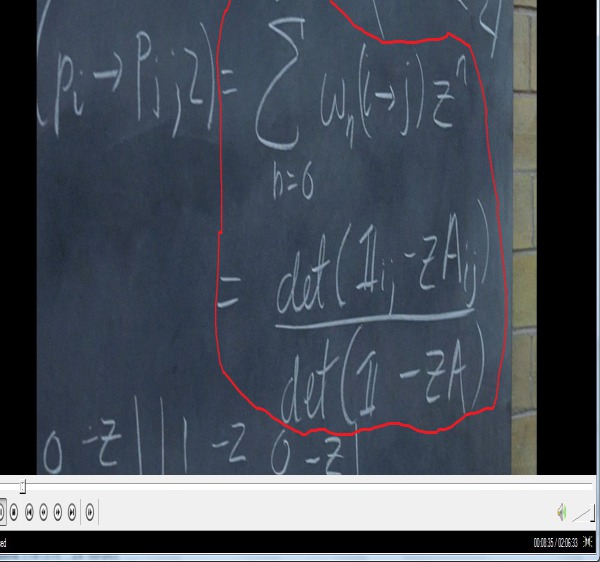 (p_i → p_j; z) = ∑_{n=0} ω_n(i→j) z^n
= det(𝟙_{ij} - zA_{ij}) / det(𝟙 - zA)
0 -z | | 1 -z 0 -z |
00:08:35 / 02:06:33